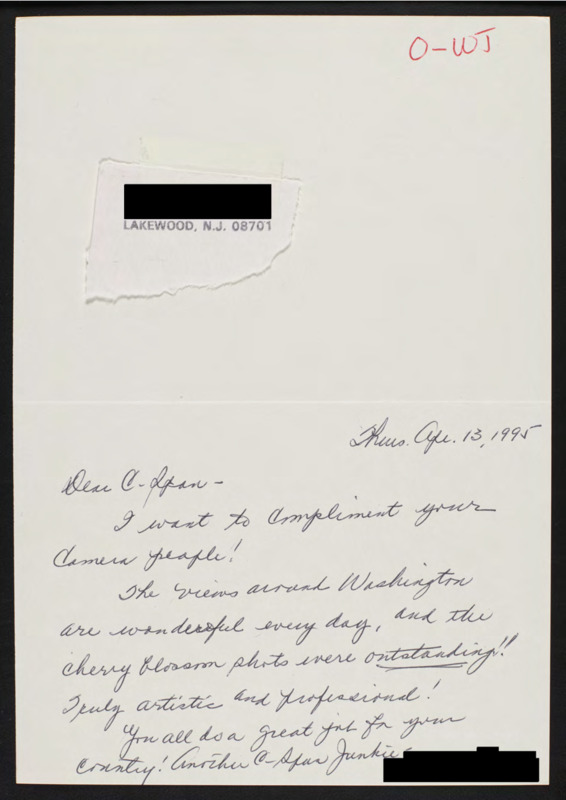 O-WJ
LAKEWOOD, N.J. 08701
Thurs. Apr. 13, 1995
Dear C-Span -
I want to compliment your
Camera people!
The views around Washington
are wonderful every day, and the
cherry blossom shots were outstanding!!
Truly artistic and professional!
You all do a great job for your
country! Another C-Span Junkie -